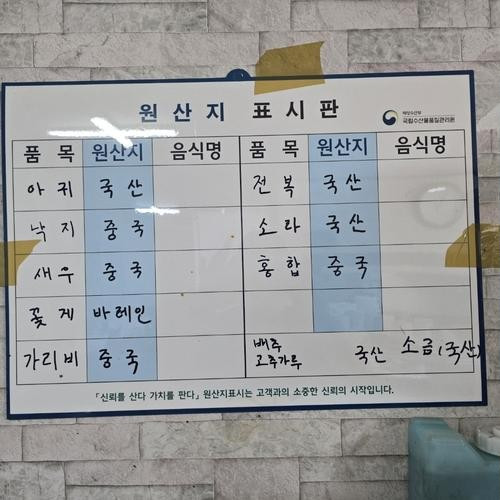 원산지 표시판
해양수산부
국립수산물품질관리원
품 목 원산지 음식명 품 목 원산지 음식명
아귀 국산 전복 국산
낙지 중국 소라 국산
새우 중국 홍합 중국
꽃게 바레인
가리비 중국 배추 고추가루 국산 소금(국산)
「신뢰를 산다 가치를 판다」 원산지표시는 고객과의 소중한 신뢰의 시작입니다.